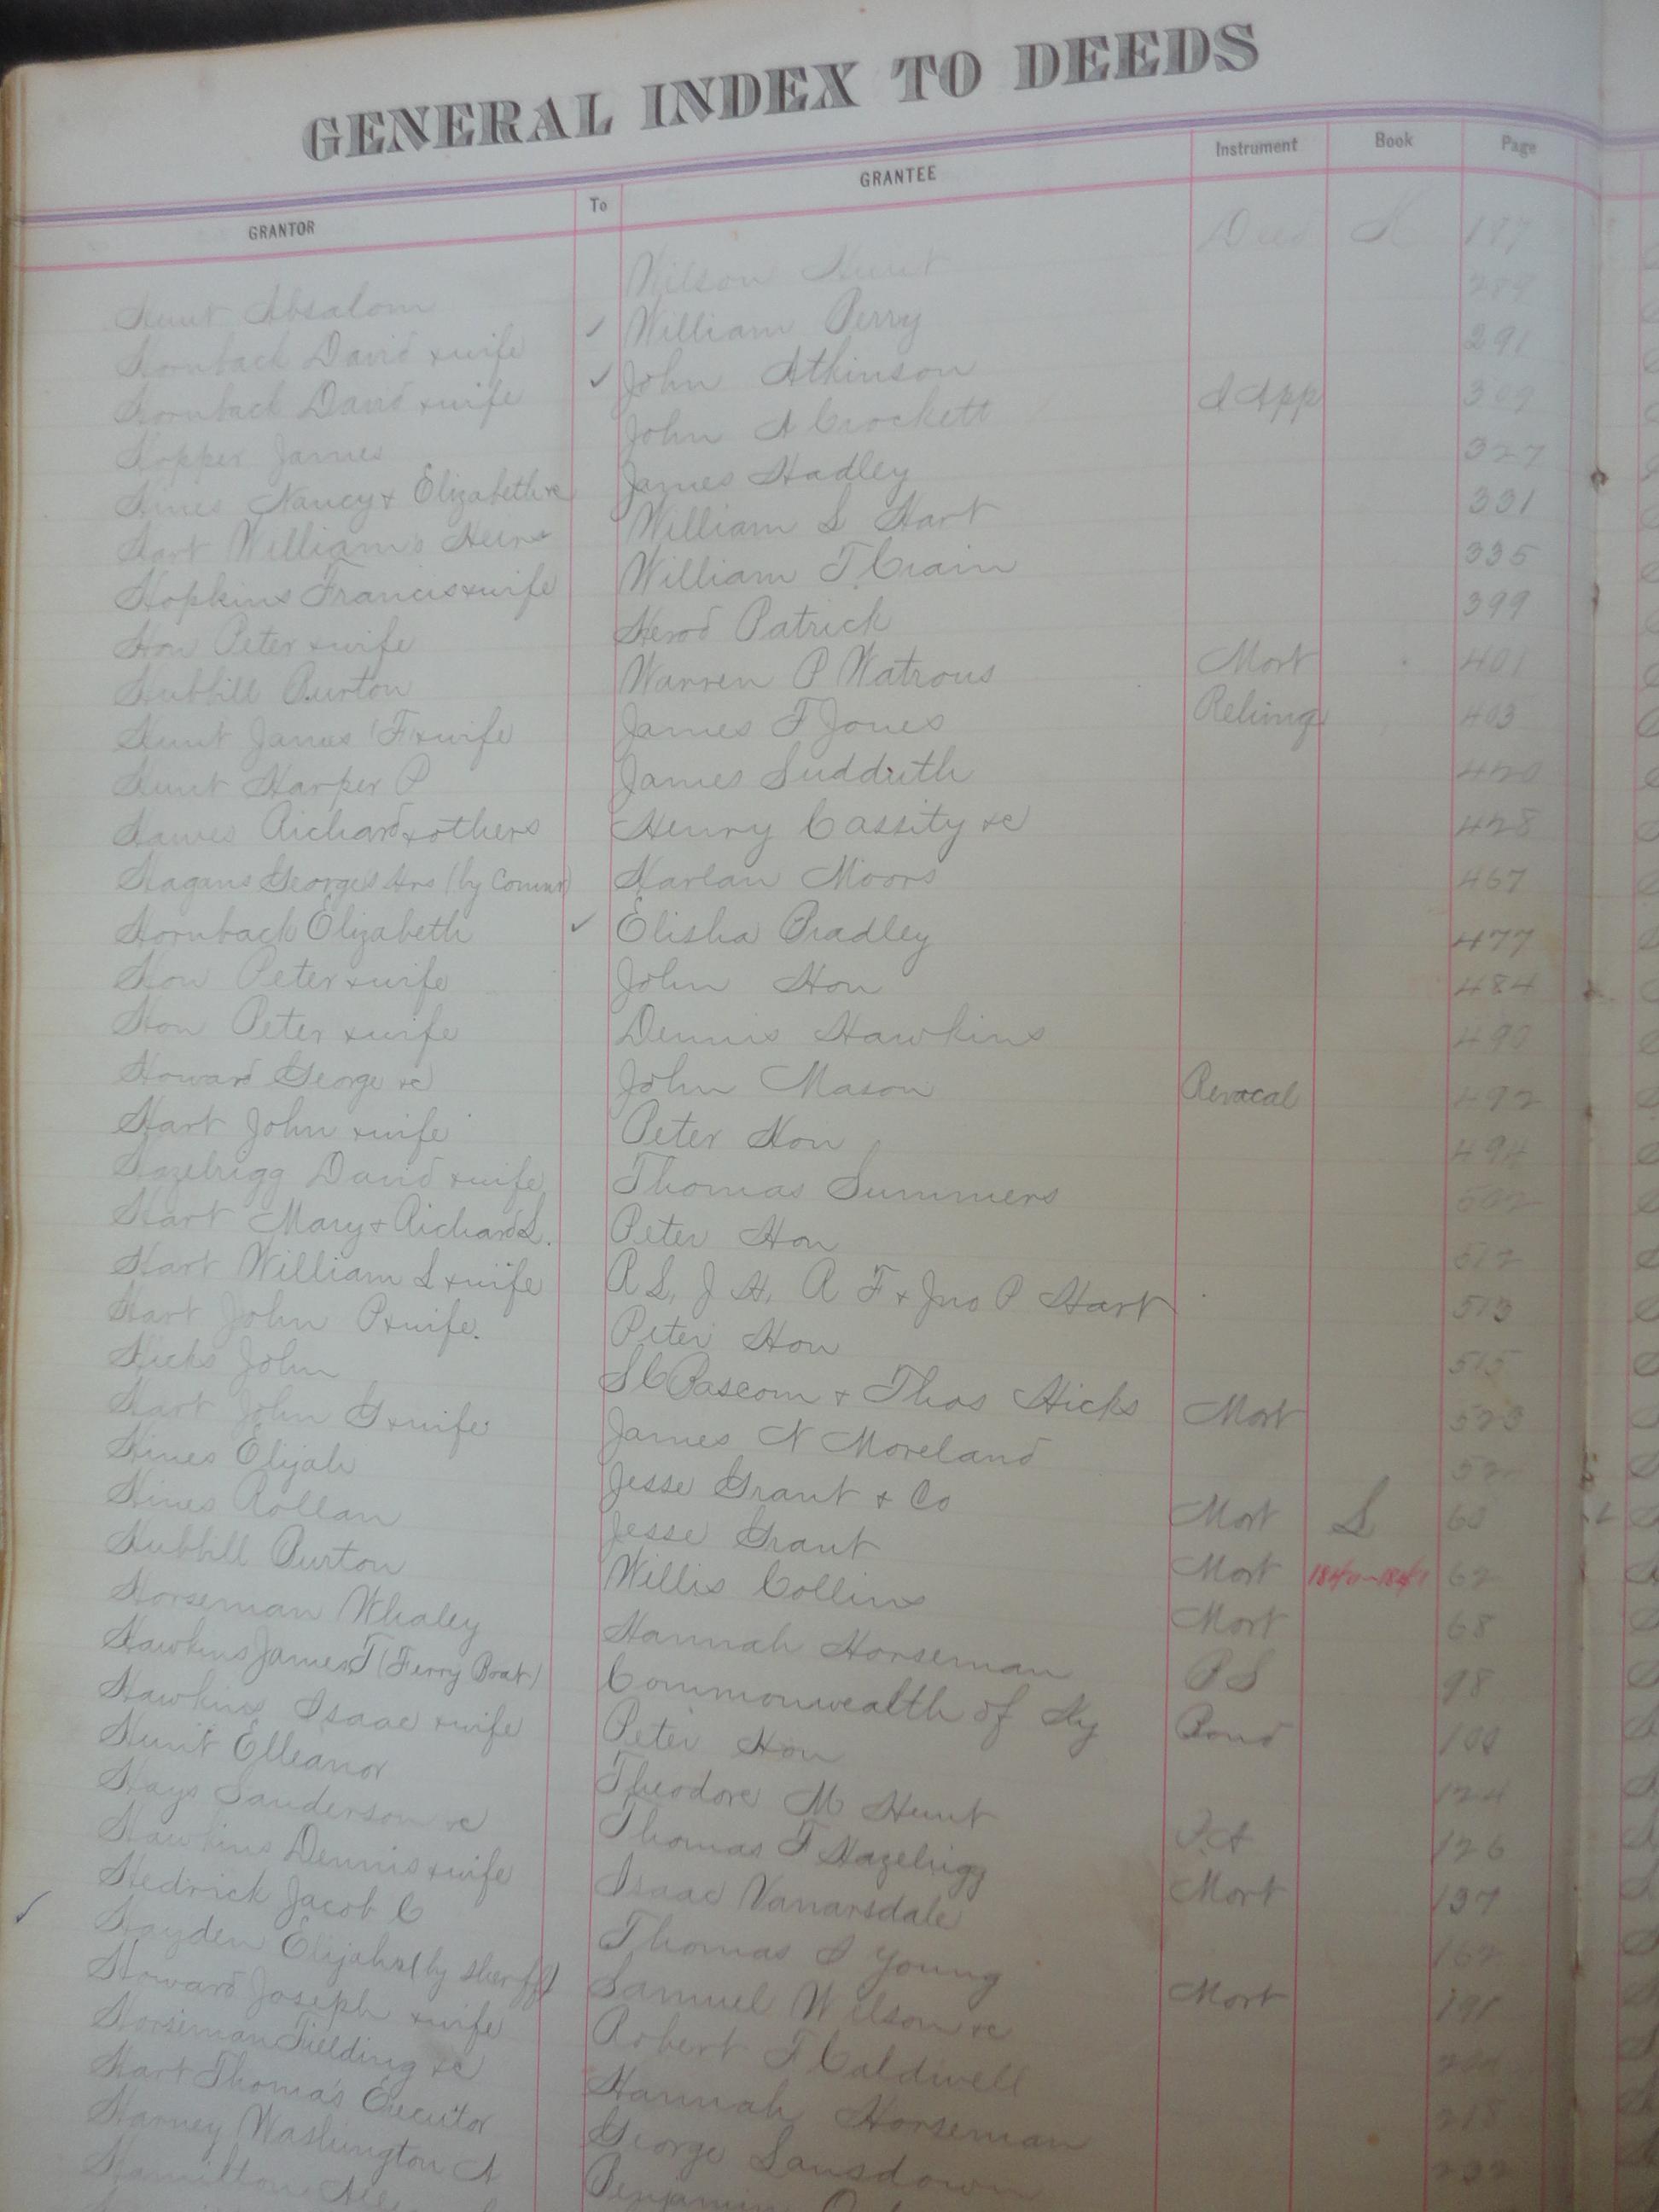 GENERAL INDEX TO DEEDS
GRANTOR To GRANTEE Instrument Book Page
Hunt Absalom Wilson Hunt Deed 187
Hornback David & wife ✓ William Perry 289
Hornback David & wife ✓ John Atkinson 291
Hopper James John A Crockett d App 309
Hines Nancy & Elizabeth &c James Hadley 327
Hart William's Heirs William S Hart 331
Hopkins Francis & wife William T. Crain 335
Hon Peter & wife Herod Patrick 399
Hubbill Burton Warren P Watrous Mort 401
Hunt James F & wife James F Jones Relinq 403
Hunt Harper P James Sudduth 420
Hawes Richard & others Henry Cassity &c 428
Hagans George's Hrs (by Commr) Harlan Moors 467
Hornback Elizabeth ✓ Elisha Bradley 477
Hon Peter & wife John Hon 484
Hon Peter & wife Dennis Hawkins 490
Howard George &c John Mason Revocal 492
Hart John & wife Peter Hon 494
Hazelrigg David & wife Thomas Summers 502
Hart Mary & Richard S. Peter Hon 512
Hart William S & wife R S, J H, A F & Jno P Hart 513
Hart John P & wife. Peter Hon 515
Hicks John S C Bascom & Thos Hicks Mort 523
Hart John G & wife James N Moreland
Hines Elijah Jesse Grant & Co Mort S 60
Hines Rollan Jesse Grant Mort 1840-1841 62
Hubbill Burton Willis Collins Mort 68
Horseman Whaley Hannah Horseman B S 98
Hawkins James T (Ferry Boat) Commonwealth of Ky Bond 100
Hawkins Isaac & wife Peter Hon 124
Hunt Elleanor Theodore M Hunt P.A 126
Hays Sanderson &c Thomas F Hazelrigg Mort 137
Hawkins Dennis & wife Isaac Vanarsdale 162
✓ Hedrick Jacob C Thomas I Young Mort
Hayden Elijah &c (by Sheriff) Samuel Wilson &c
Howard Joseph & wife Robert T Caldwell 218
Horseman Fielding &c Hannah Horseman 232
Hart Thomas Executor George Lansdown
Harney Washington A Benjamin
Hamilton